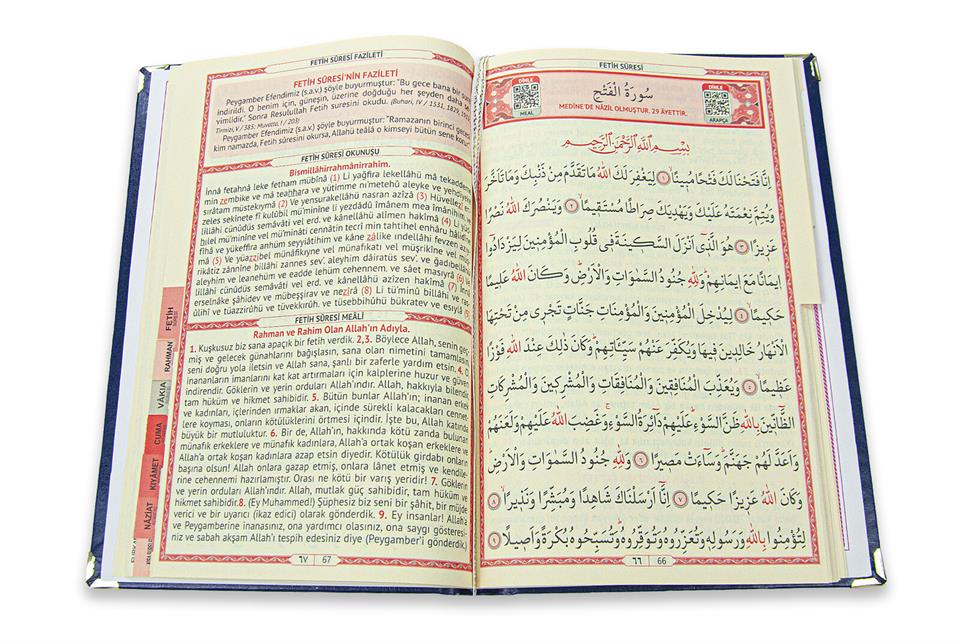 FETİH SÛRESİ FAZİLETİ
FETİH SÛRESİ'NİN FAZİLETİ
Peygamber Efendimiz (s.a.v.) şöyle buyurmuştur: "Bu gece bana bir sure
indirildi. O benim için, güneşin, üzerine doğduğu her şeyden daha se-
vimlidir." Sonra Resulullah Fetih suresini okudu. (Buhari, IV / 1531, 1829,
Tirmizi, V / 385; Muvatta, I / 203)
Peygamber Efendimiz (s.a.v.) şöyle buyurmuştur: "Ramazanın birinci gecesi
kim namazda, Fetih sûresini okursa, Allahü teâlâ o kimseyi bütün sene korur."
FETİH SÛRESİ OKUNUŞU
Bismillâhirrahmânirrahîm.
İnnâ fetahnâ leke fetham mübînâ (1) Li yağfira lekellâhü mâ tekaddeme
min zembike ve mâ teahhara ve yütimme ni'metehû aleyke ve yehdiyeke
sırâtam müstekıymâ (2) Ve yensurakellâhü nasran azîzâ (3) Hüvellezî en-
zeles sekînete fî kulûbil mü'minîne li yezdâdû îmânem mea îmânihim, ve
lillâhi cünûdüs semâvâti vel erd. ve kânellâhü alîmen hakîmâ (4) Li yüd-
hılel mü'minîne vel mü'minâti cennâtin tecrî min tahtihel enhâru hâlidîne
fîhâ ve yükeffira anhüm seyyiâtihim ve kâne zâlike ındellâhi fevzen azîy-
mâ (5) Ve yüazzibel münâfikıyne vel münafıkati vel müşrikîne vel müş-
rikâtiz zânnîne billâhi zannes sev'. aleyhim dâiratüs sev'. ve ğadıbellâhü
aleyhim ve leanehüm ve eadde lehüm cehennem. ve sâet masıyrâ (6) Ve
lillâhi cünûdüs semâvâti vel erd. ve kânellâhü azîzen hakîmâ (7) İnnâ
erselnâke şâhidev ve mübeşşirav ve nezîrâ (8) Li tü'minû billâhi ve ra-
ûlihî ve tüazzirûhü ve tüvekkırûh. ve tüsebbihûhü bükratev ve esıyla (9)
FETİH SÛRESİ MEÂLİ
Rahman ve Rahim Olan Allah'ın Adıyla.
1. Kuşkusuz biz sana apaçık bir fetih verdik. 2,3. Böylece Allah, senin geç-
miş ve gelecek günahlarını bağışlasın, sana olan nimetini tamamlasın
seni doğru yola iletsin ve Allah sana, şanlı bir zaferle yardım etsin. 4. O
inananların imanlarını kat kat artırmaları için kalplerine huzur ve güven
indirendir. Göklerin ve yerin orduları Allah'ındır. Allah, hakkıyla bilendir,
tam hüküm ve hikmet sahibidir. 5. Bütün bunlar Allah'ın; inanan erkek
ve kadınları, içlerinden ırmaklar akan, içinde sürekli kalacakları cennet-
lere koyması, onların kötülüklerini örtmesi içindir. İşte bu, Allah katında
büyük bir mutluluktur. 6. Bir de, Allah'ın, hakkında kötü zanda bulunan
münafık erkeklere ve münafık kadınlara, Allah'a ortak koşan erkeklere ve
Allah'a ortak koşan kadınlara azap etsin diyedir. Kötülük girdabı onların
başına olsun! Allah onlara gazap etmiş, onlara lânet etmiş ve kendile-
rine cehennemi hazırlamıştır. Orası ne kötü bir varış yeridir! 7. Göklerin
ve yerin orduları Allah'ındır. Allah, mutlak güç sahibidir, tam hüküm ve
hikmet sahibidir.8. (Ey Muhammed!) Şüphesiz biz seni bir şâhit, bir müjde
verici ve bir uyarıcı (ikaz edici) olarak gönderdik. 9. Ey insanlar! Allah'a
ve Peygamberine inanasınız, ona yardımcı olasınız, ona saygı gösteresi-
niz ve sabah akşam Allah'ı tespih edesiniz diye (Peygamber'i gönderdik)
٦٧ 67
FETİH
SÛRESİ
RAHMAN
VÂKIA
CUMA
KIYÂMET
NÂZİAT
FETİH SÛRESİ
DİNLE
MEAL
سُورَةُ الْفَتْحِ
MEDİNE'DE NÂZİL OLMUŞTUR. 29 ÂYETTİR.
DİNLE
ARAPÇA
بِسْمِ اللّٰهِ الرَّحْمٰنِ الرَّحٖيمِ
اِنَّا فَتَحْنَا لَكَ فَتْحًا مُبٖينًا ﴿١﴾ لِيَغْفِرَ لَكَ اللّٰهُ مَا تَقَدَّمَ مِنْ ذَنْبِكَ وَمَا تَاَخَّرَ
وَيُتِمَّ نِعْمَتَهُ عَلَيْكَ وَيَهْدِيَكَ صِرَاطًا مُسْتَقٖيمًا ﴿٢﴾ وَيَنْصُرَكَ اللّٰهُ نَصْرًا
عَزٖيزًا ﴿٣﴾ هُوَ الَّذٖٓى اَنْزَلَ السَّكٖينَةَ فٖى قُلُوبِ الْمُؤْمِنٖينَ لِيَزْدَادُٓوا
اٖيمَانًا مَعَ اٖيمَانِهِمْ وَلِلّٰهِ جُنُودُ السَّمٰوَاتِ وَالْاَرْضِ وَكَانَ اللّٰهُ عَلٖيمًا
حَكٖيمًا ﴿٤﴾ لِيُدْخِلَ الْمُؤْمِنٖينَ وَالْمُؤْمِنَاتِ جَنَّاتٍ تَجْرٖى مِنْ تَحْتِهَا
الْاَنْهَارُ خَالِدٖينَ فٖيهَا وَيُكَفِّرَ عَنْهُمْ سَيِّـَٔاتِهِمْ وَكَانَ ذٰلِكَ عِنْدَ اللّٰهِ فَوْزًا
عَظٖيمًا ﴿٥﴾ وَيُعَذِّبَ الْمُنَافِقٖينَ وَالْمُنَافِقَاتِ وَالْمُشْرِكٖينَ وَالْمُشْرِكَاتِ
الظَّٓانّٖينَ بِاللّٰهِ ظَنَّ السَّوْءِ عَلَيْهِمْ دَٓائِرَةُ السَّوْءِ وَغَضِبَ اللّٰهُ عَلَيْهِمْ وَلَعَنَهُمْ
وَاَعَدَّ لَهُمْ جَهَنَّمَ وَسَٓاءَتْ مَصٖيرًا ﴿٦﴾ وَلِلّٰهِ جُنُودُ السَّمٰوَاتِ وَالْاَرْضِ
وَكَانَ اللّٰهُ عَزٖيزًا حَكٖيمًا ﴿٧﴾ اِنَّٓا اَرْسَلْنَاكَ شَاهِدًا وَمُبَشِّرًا وَنَذٖيرًا ﴿٨﴾
لِتُؤْمِنُوا بِاللّٰهِ وَرَسُولِهٖ وَتُعَزِّرُوهُ وَتُوَقِّرُوهُ وَتُسَبِّحُوهُ بُكْرَةً وَاَصٖيلًا ﴿٩﴾
٦٦ 66